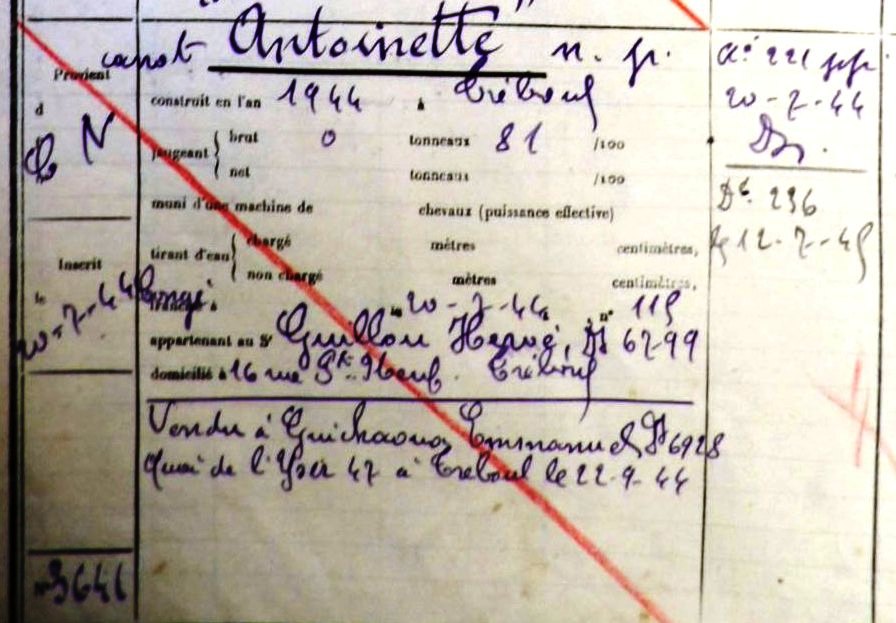 canot Antoinette n. p.
Provient
d
C N
construit en l'an 1944 à Tréboul
jaugeant
brut 0 tonneaux 81 /100
net tonneaux /100
muni d'une machine de chevaux (puissance effective)
tirant d'eau
chargé mètres centimètres,
non chargé mètres centimètres,
Inscrit
le 20-7-44
francisé à le 20-7-44, n° 115
appartenant au Sr Guillou Hervé, 6799
domicilié à 16 rue Tréboul
Vendu à Guichaoua Emmanuel 6928
Quai de l'Yser 47 à Tréboul le 22-9-44
3641
221
20-7-44
Dz.
236
le 12-7-45